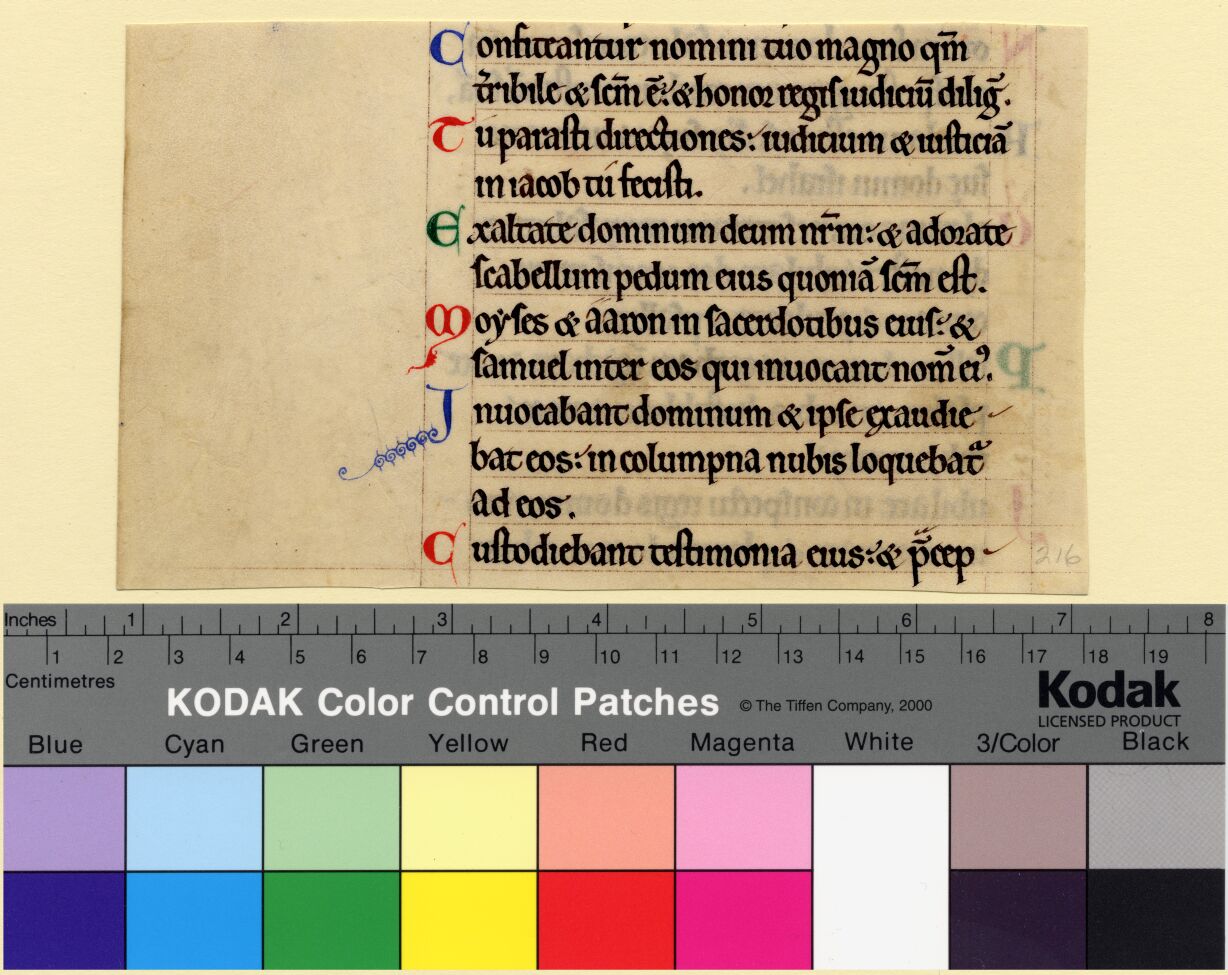 Confiteantur nomini tuo magno qm̄
t̄ribile & sc̄m ē: & honor regis iudiciū diliḡ.
Tu parasti directiones: iudicium & iusticiā
in iacob tu fecisti.
Exaltate dominum deum nr̄m: & adorate
scabellum pedum eius quoniā sc̄m est.
Moyses & aaron in sacerdotibus eius: &
samuel inter eos qui inuocant nom̄ eiꝰ.
Inuocabant dominum & ipse exaudie
bat eos: in columpna nubis loquebatͣ
ad eos.
Custodiebant testimonia eius: & p̄cep
216
Inches 1 2 3 4 5 6 7 8
1 2 3 4 5 6 7 8 9 10 11 12 13 14 15 16 17 18 19
Centimetres
KODAK Color Control Patches © The Tiffen Company, 2000 Kodak
LICENSED PRODUCT
Blue Cyan Green Yellow Red Magenta White 3/Color Black